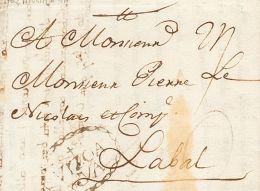 A Monsieur
Monsieur Pierre Le
Nicolais et Comp.
Laval